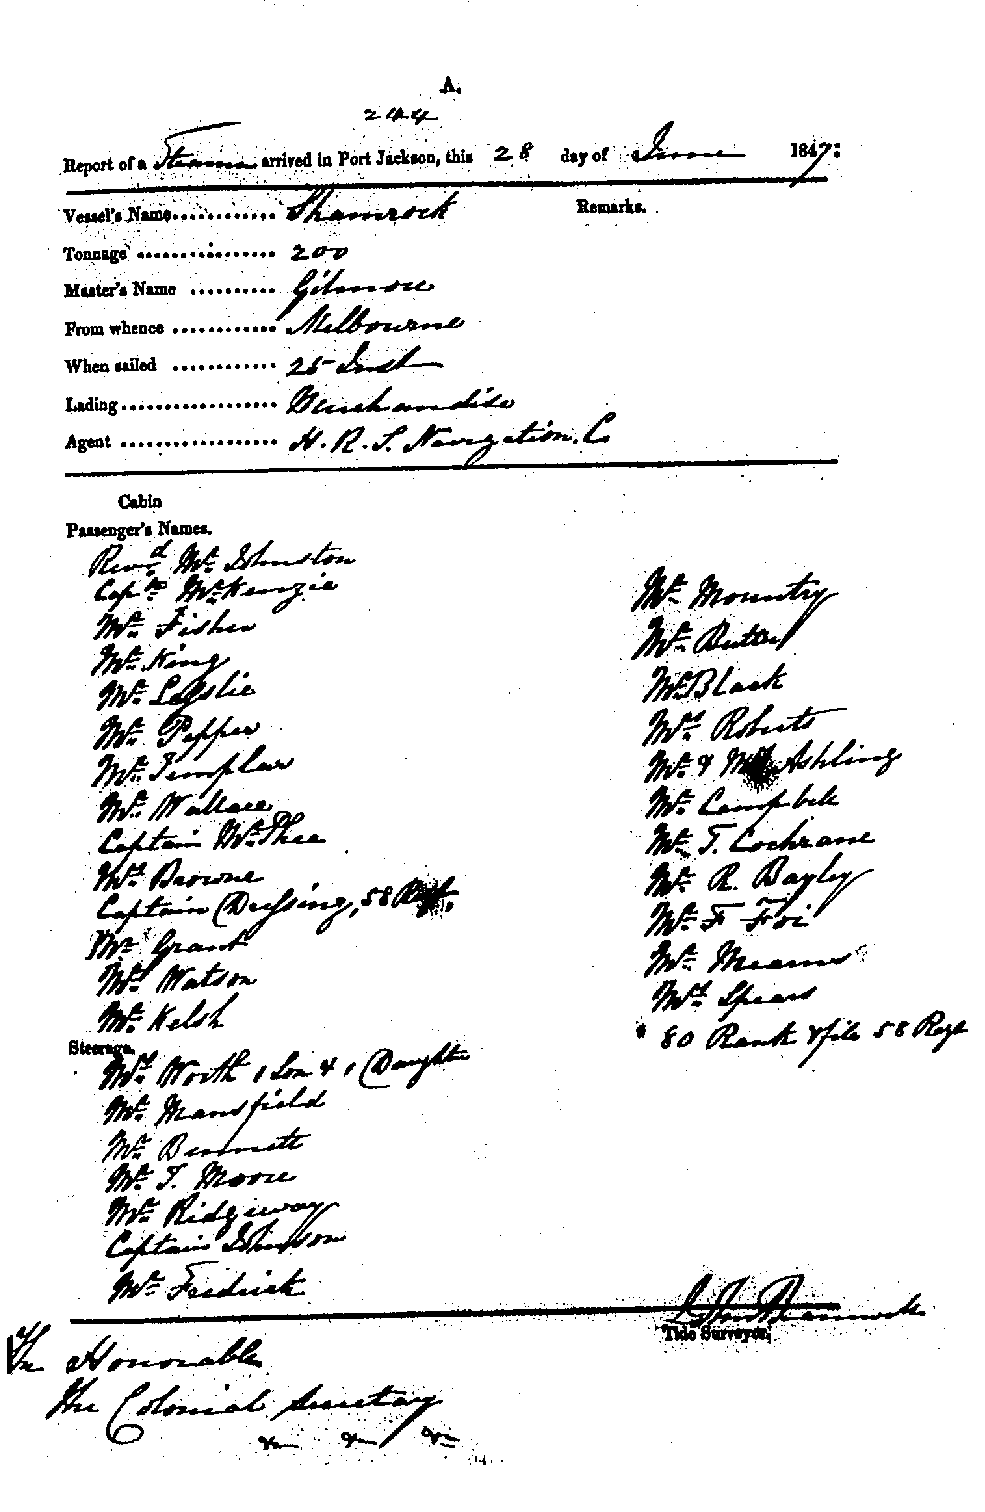 A.
244
Report of a Steamer arrived in Port Jackson, this 28 day of June 1847:
Vessel's Name............ Shamrock
Remarks.
Tonnage ................ 200
Master's Name .......... Gilmore
From whence ............ Melbourne
When sailed ............ 25 Inst
Lading.................. Merchandise
Agent .................. H. R. S. Navigation. Co
Cabin
Passenger's Names.
Revd. Mr. Johnston
Captn. McKenzie
Mr. Fisher
Mr. King
Mr. Leslie
Mr. Pepper
Mr. Templar
Mr. Wallace
Captain McPhee
Mrs. Browne
Captain Dressing, 58 Regt.
Mr. Grant
Mrs. Watson
Mr. Kelsh
Steerage.
Mrs. Worth 1 Son & 1 Daughtr
Mr. Mansfield
Mr. Bennett
Mr. T. Moore
Mr. Ridgeway
Captain Johnson
Mr. Fredrick
Mr. Mountry
Mr. Butler
Mr. Black
Mrs. Roberts
Mr. & Mrs. Ashling
Mr. Campbell
Mr. T. Cochrane
Mr. R. Bayley
Mr. F Foi
Mr. Means
Mrs. Spears
* 80 Rank & file 58 Regt
Tide Surveyor,
The Honorable
The Colonial Secretary
&c &c &c